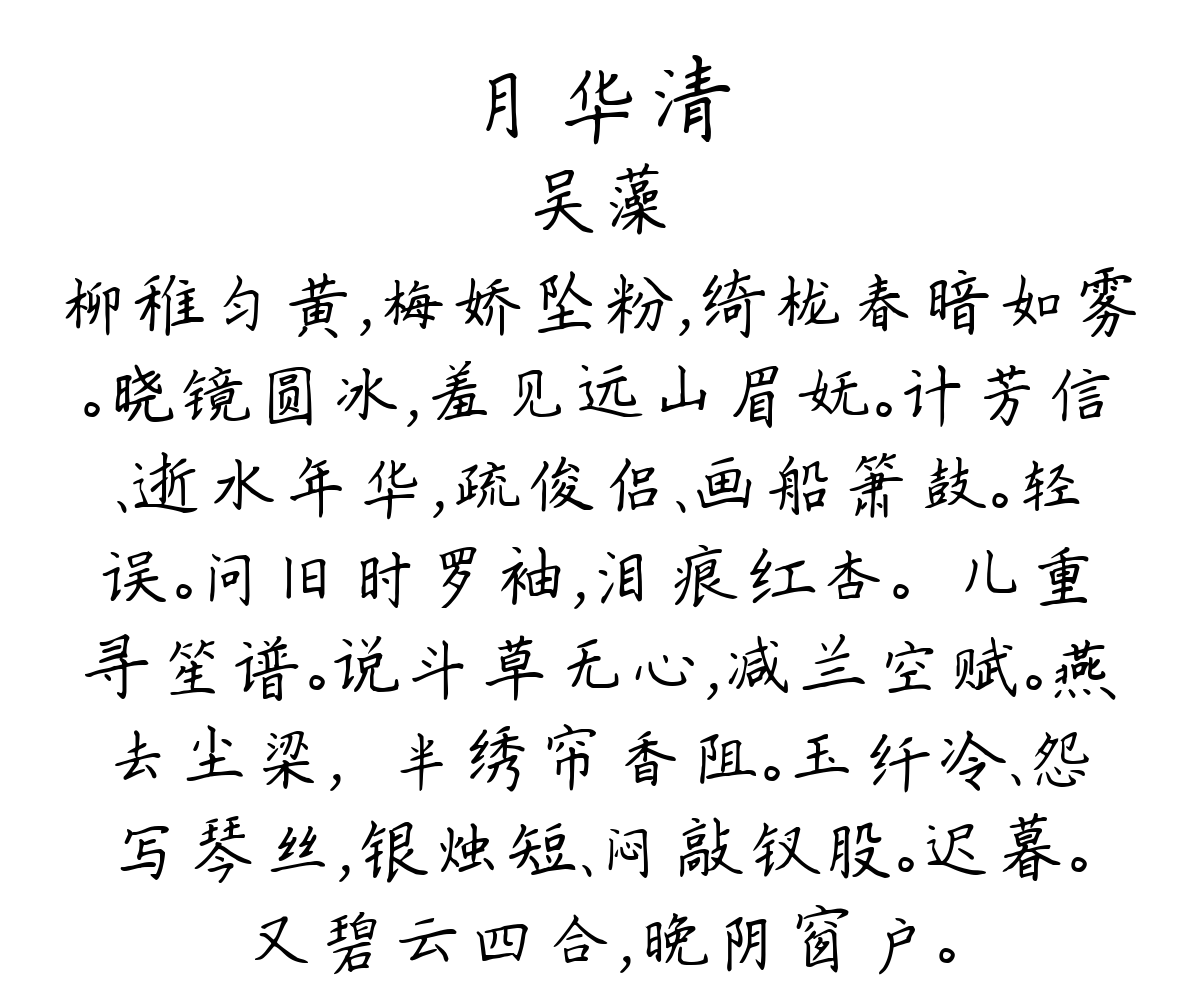 月华清
吴藻
柳稚匀黄,梅娇坠粉,绮栊春暗如雾
。晓镜圆冰,羞见远山眉妩。计芳信
、逝水年华,疏俊侣、画船箫鼓。轻
误。问旧时罗袖,泪痕红杏。 儿重
寻笙谱。说斗草无心,减兰空赋。燕
去尘梁, 半绣帘香阻。玉纤冷、怨
写琴丝,银烛短、闷敲钗股。迟暮。
又碧云四合,晚阴窗户。